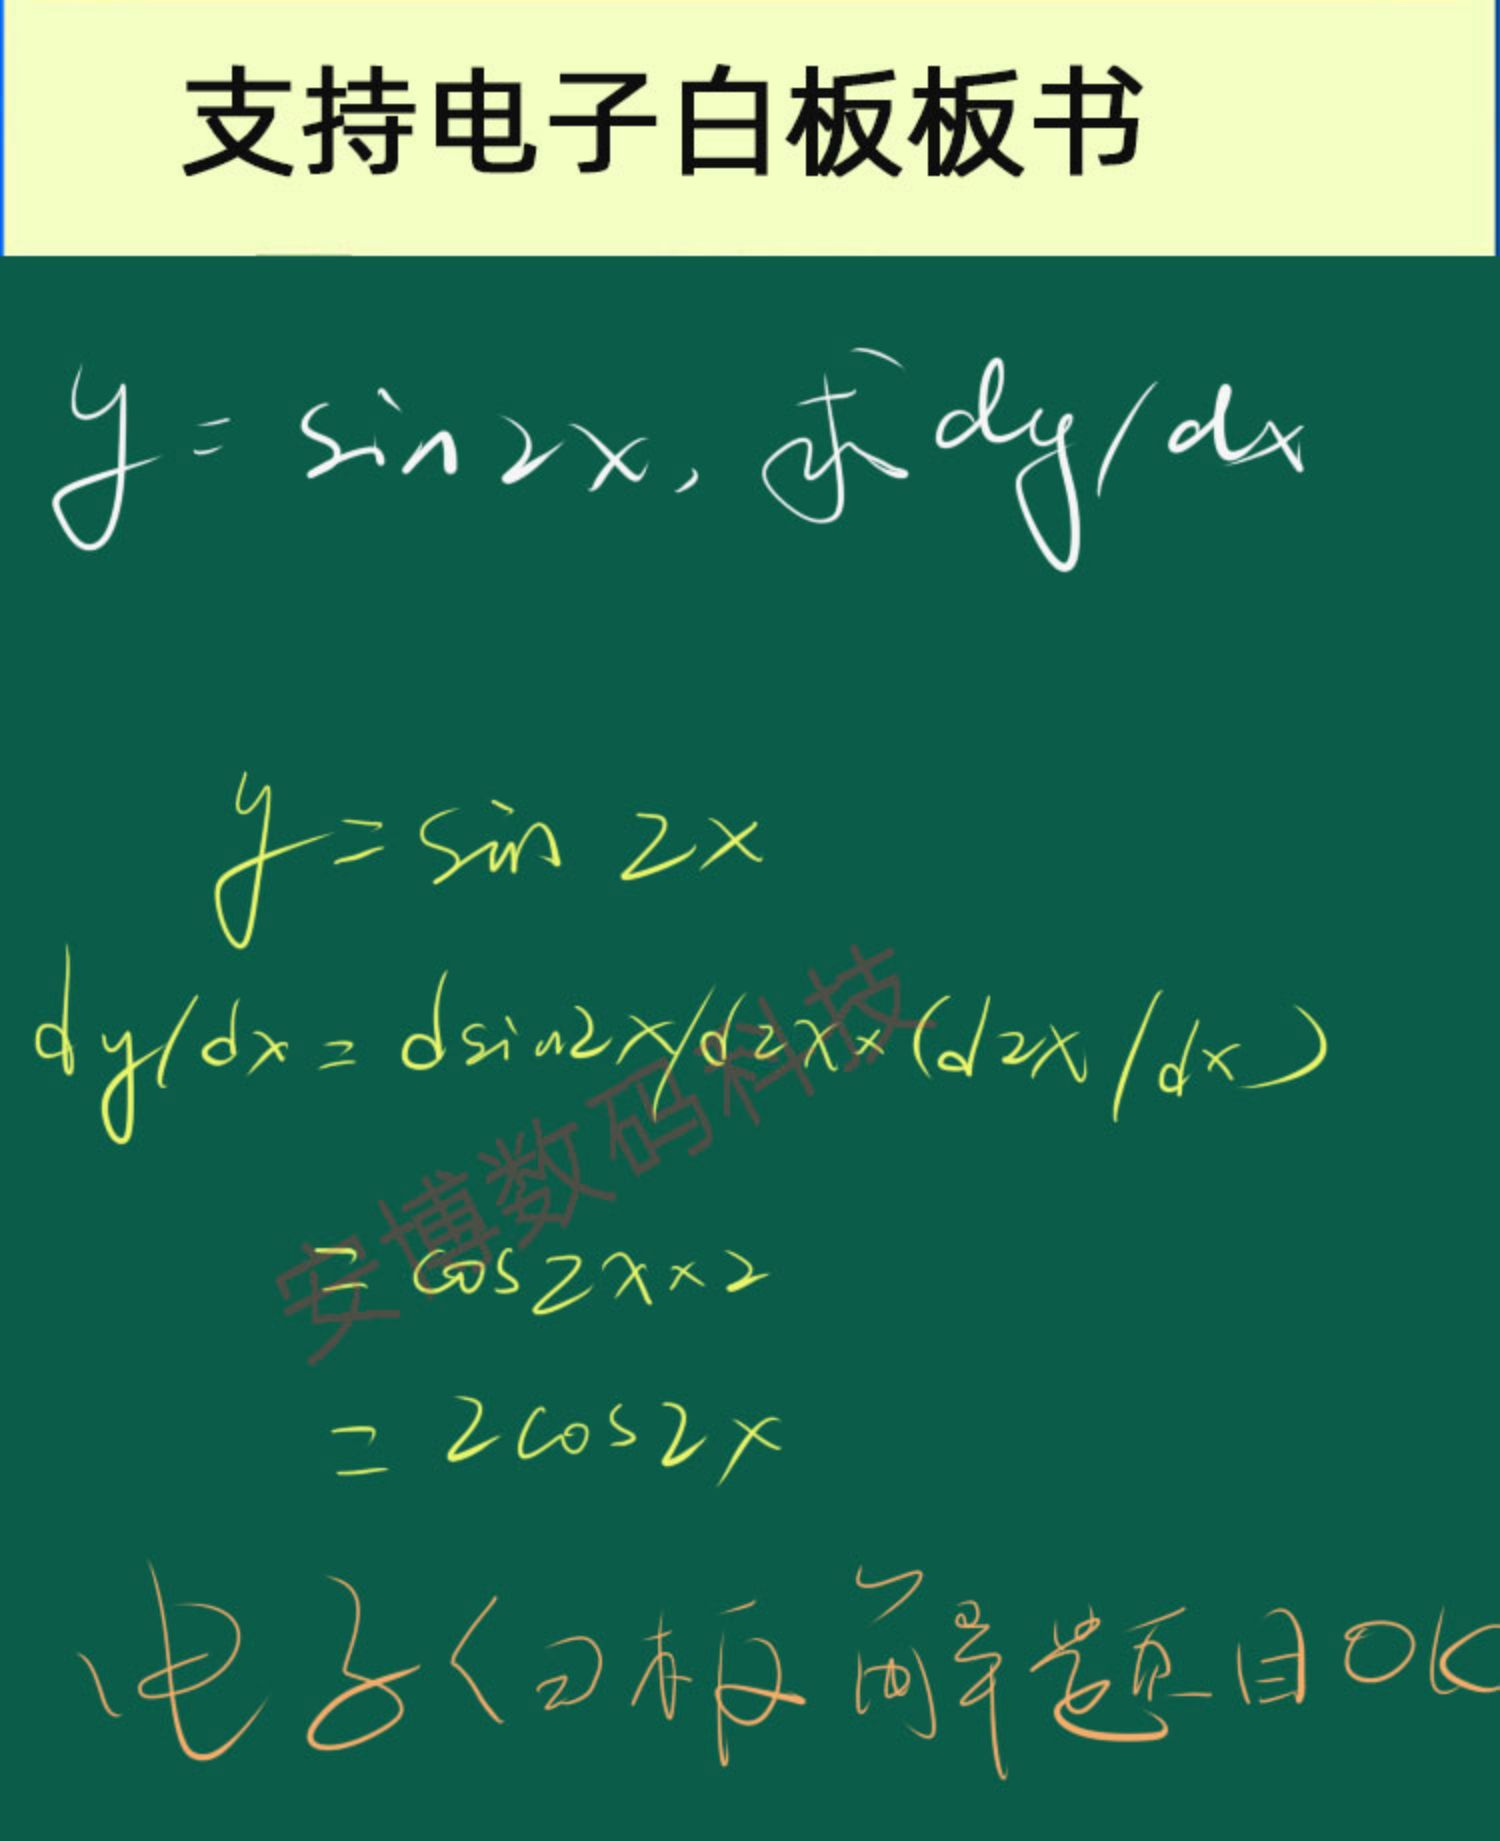 支持电子白板板书
y = sin2x, 求dy/dx
y = sin 2x
dy/dx = dsin2x/d2x×(d2x/dx)
= cos2x×2
= 2cos2x
安博数码科技
电子白板解题目OK